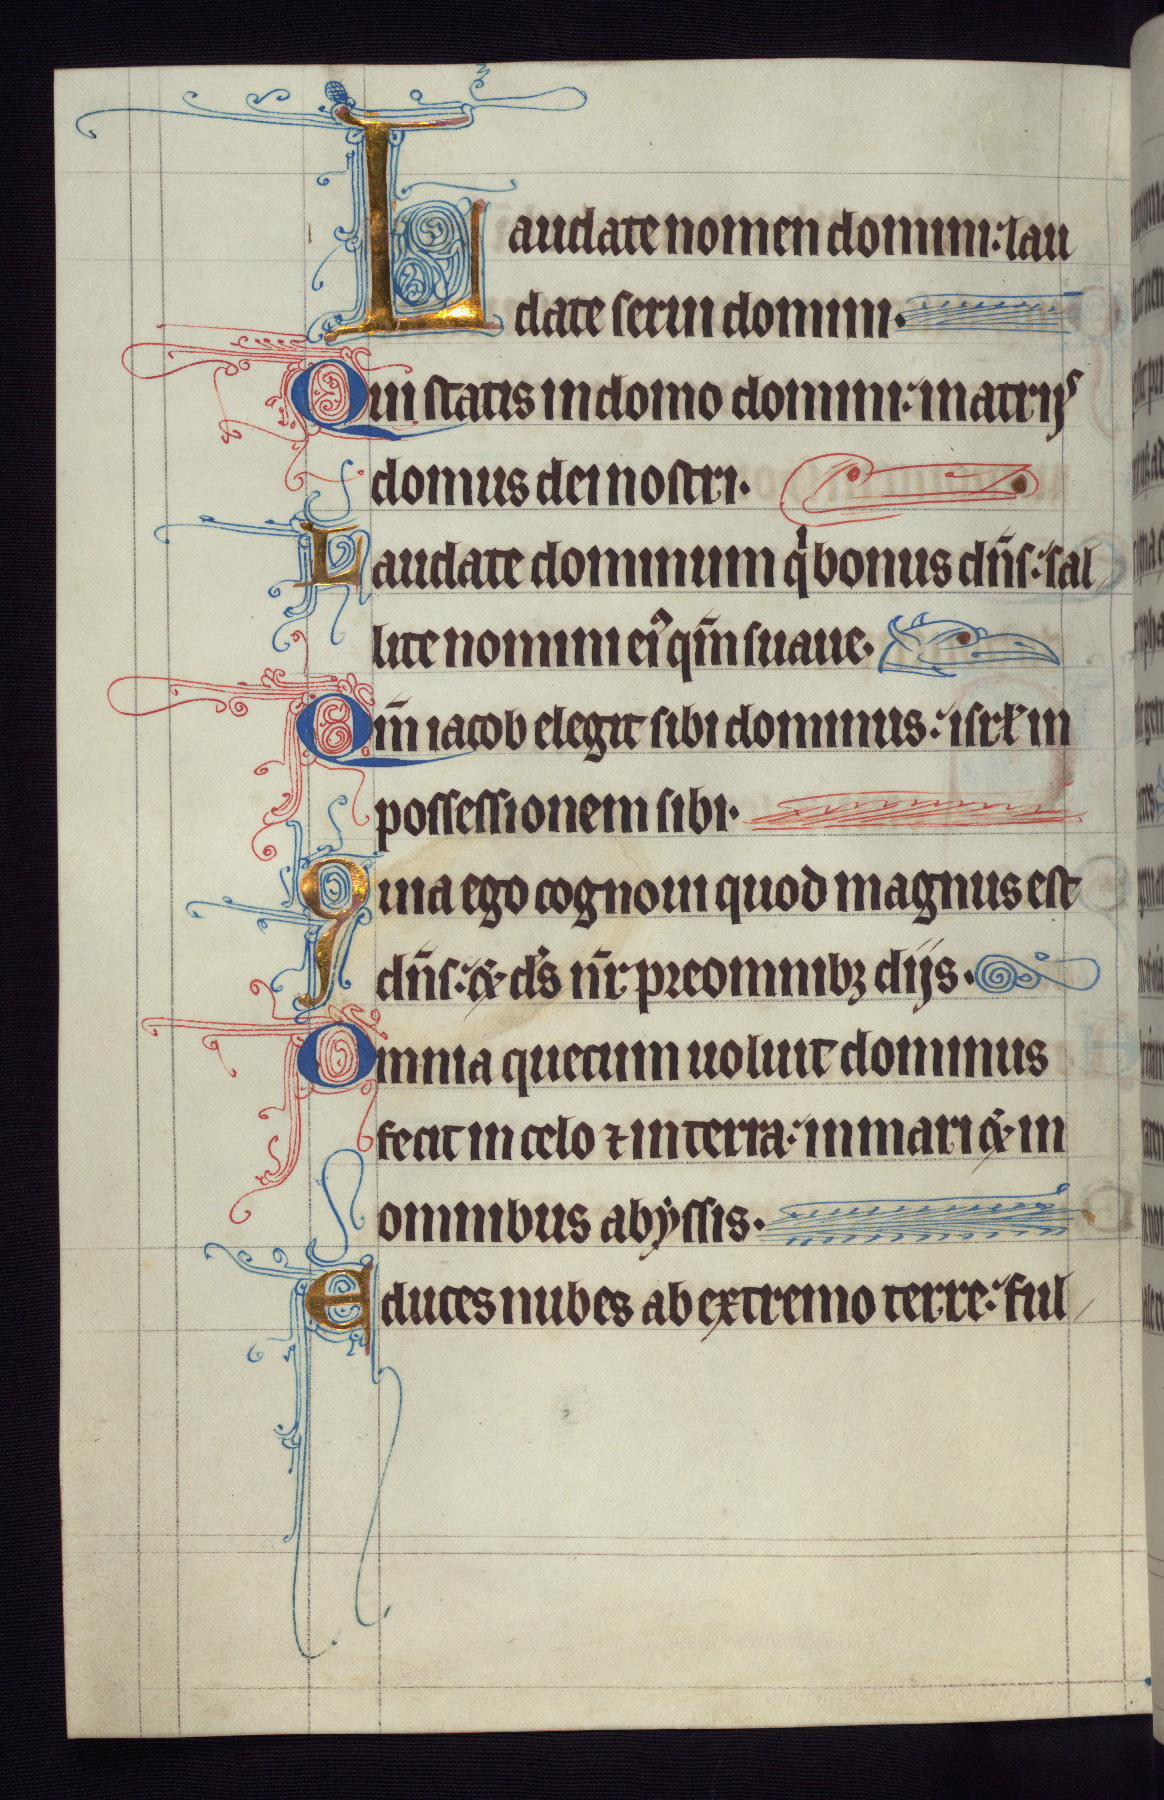 Laudate nomen domini: lau
date serui domini.
Qui statis in domo domini: in atrijs
domus dei nostri.
Laudate dominum qͥ bonus dn̄s: sal
lite nomini eiꝰ qm̄ suaue.
Qm̄ iacob elegit sibi dominus: isrł in
possessionem sibi.
Quia ego cognoui quod magnus est
dn̄s: & ds̄ nr̄ pre omnibꝫ dijs.
Omnia quecum uoluit dominus
fecit in celo ⁊ in terra: in mari & in
omnibus abyssis.
Educes nubes ab extremo terre: ful